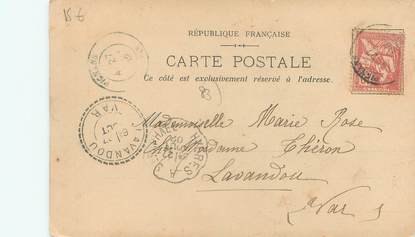 15 €
RÉPUBLIQUE FRANÇAISE
CARTE POSTALE
Ce côté est exclusivement réservé à l'adresse.
8
Mademoiselle Marie Rose
Chez Madame Théron
Lavandou
Var
LAVANDOU
VAR